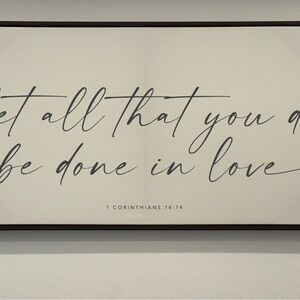 let all that you d
be done in love
1 CORINTHIANS 16:14